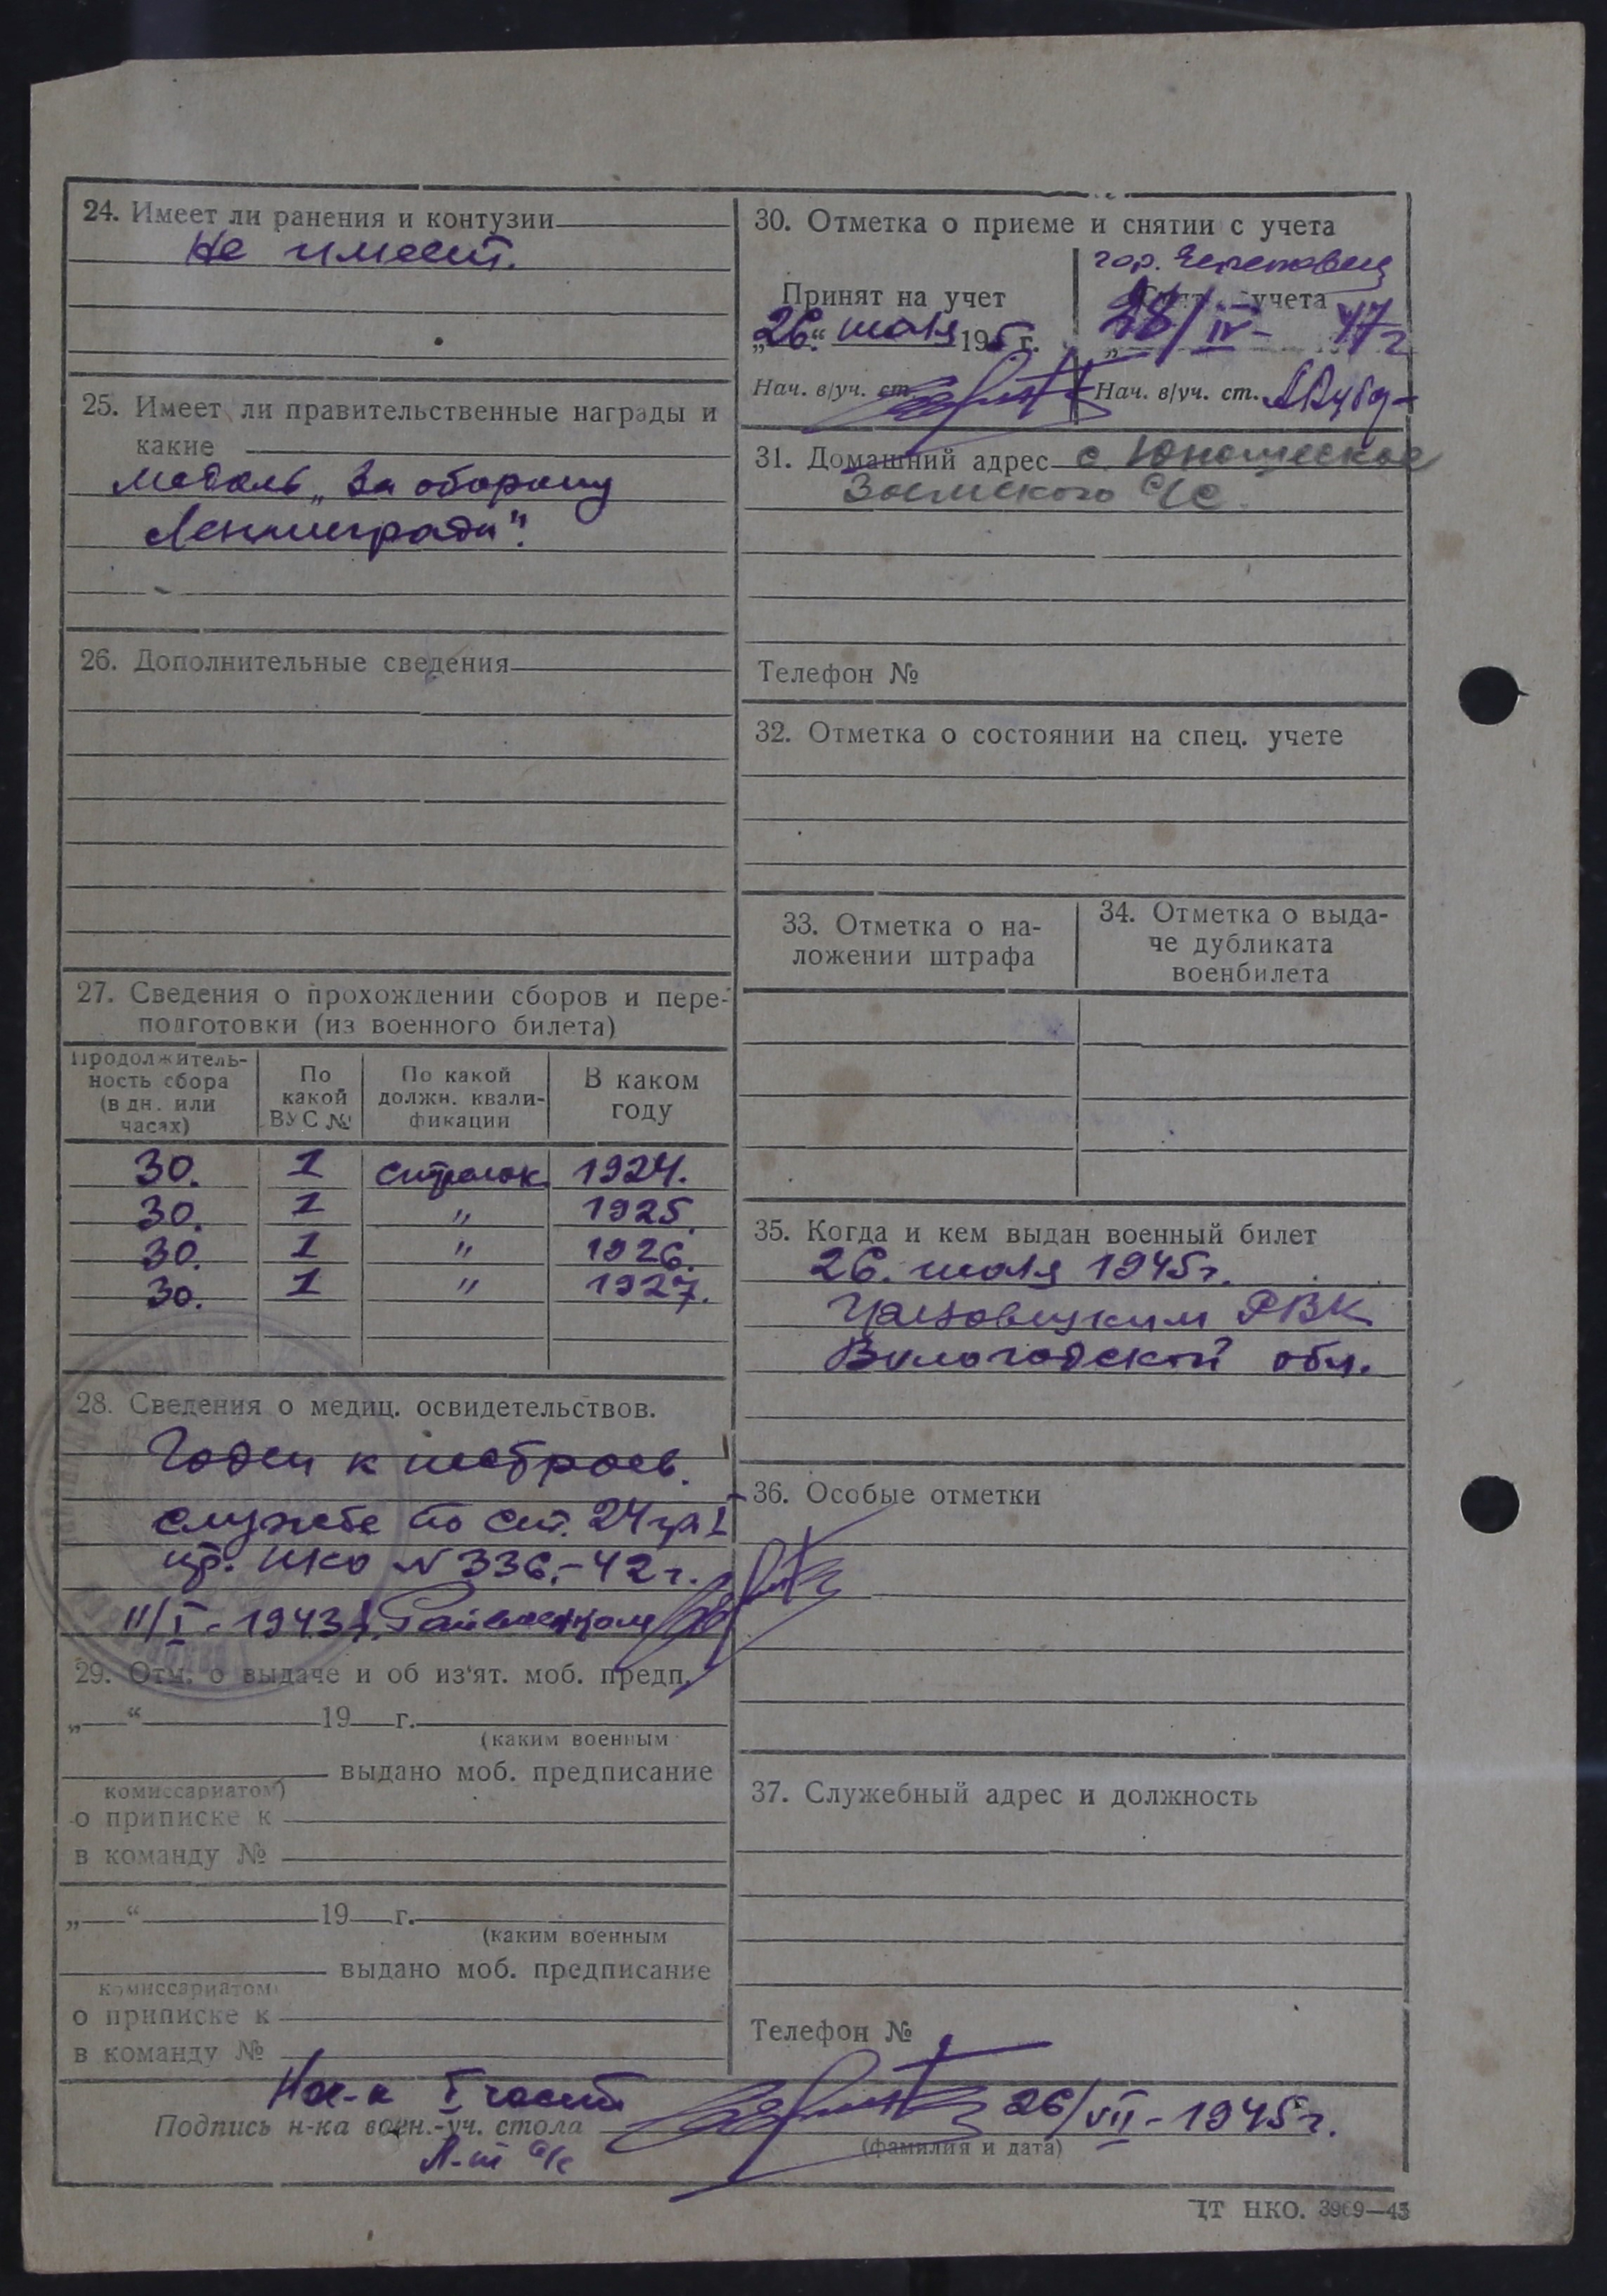 24. Имеет ли ранения и контузии
Не имеет.
25. Имеет ли правительственные награды и
какие
медаль „За оборону
Ленинграда".
26. Дополнительные сведения
27. Сведения о прохождении сборов и пере-
подготовки (из военного билета)
Продолжитель-
ность сбора
(в дн. или
часах)
По
какой
ВУС №
По какой
должн. квали-
фикации
В каком
году
30. 1 стрелок 1924.
30. 1 " 1925.
30. 1 " 1926.
30. 1 " 1927.
28. Сведения о медиц. освидетельствов.
Годен к нестроев.
службе по ст. 24 гр. I
пр. НКО № 336.-42 г.
11/I - 1943
29. Отм. о выдаче и об из'ят. моб. предп.
„ “ 19 г.
(каким военным
выдано моб. предписание
комиссариатом)
о приписке к
в команду №
„ “ 19 г.
(каким военным
выдано моб. предписание
комиссариатом)
о приписке к
в команду №
30. Отметка о приеме и снятии с учета
гор. Череповец
Принят на учет
„26“ июля 195 г.
Нач. в/уч. ст.
Снят с учета
28/IV- 47 г
Нач. в/уч. ст.
31. Домашний адрес с. Юношеское
Заемского с/с.
Телефон №
32. Отметка о состоянии на спец. учете
33. Отметка о на-
ложении штрафа
34. Отметка о выда-
че дубликата
военбилета
35. Когда и кем выдан военный билет
26. июля 1945 г.
РВК
Вологодской обл.
36. Особые отметки
37. Служебный адрес и должность
Телефон №
Нач-к I части
Подпись н-ка воен.-уч. стола
26/VII - 1945 г.
Л-т а/с
(фамилия и дата)
ЦТ НКО. 3969—43